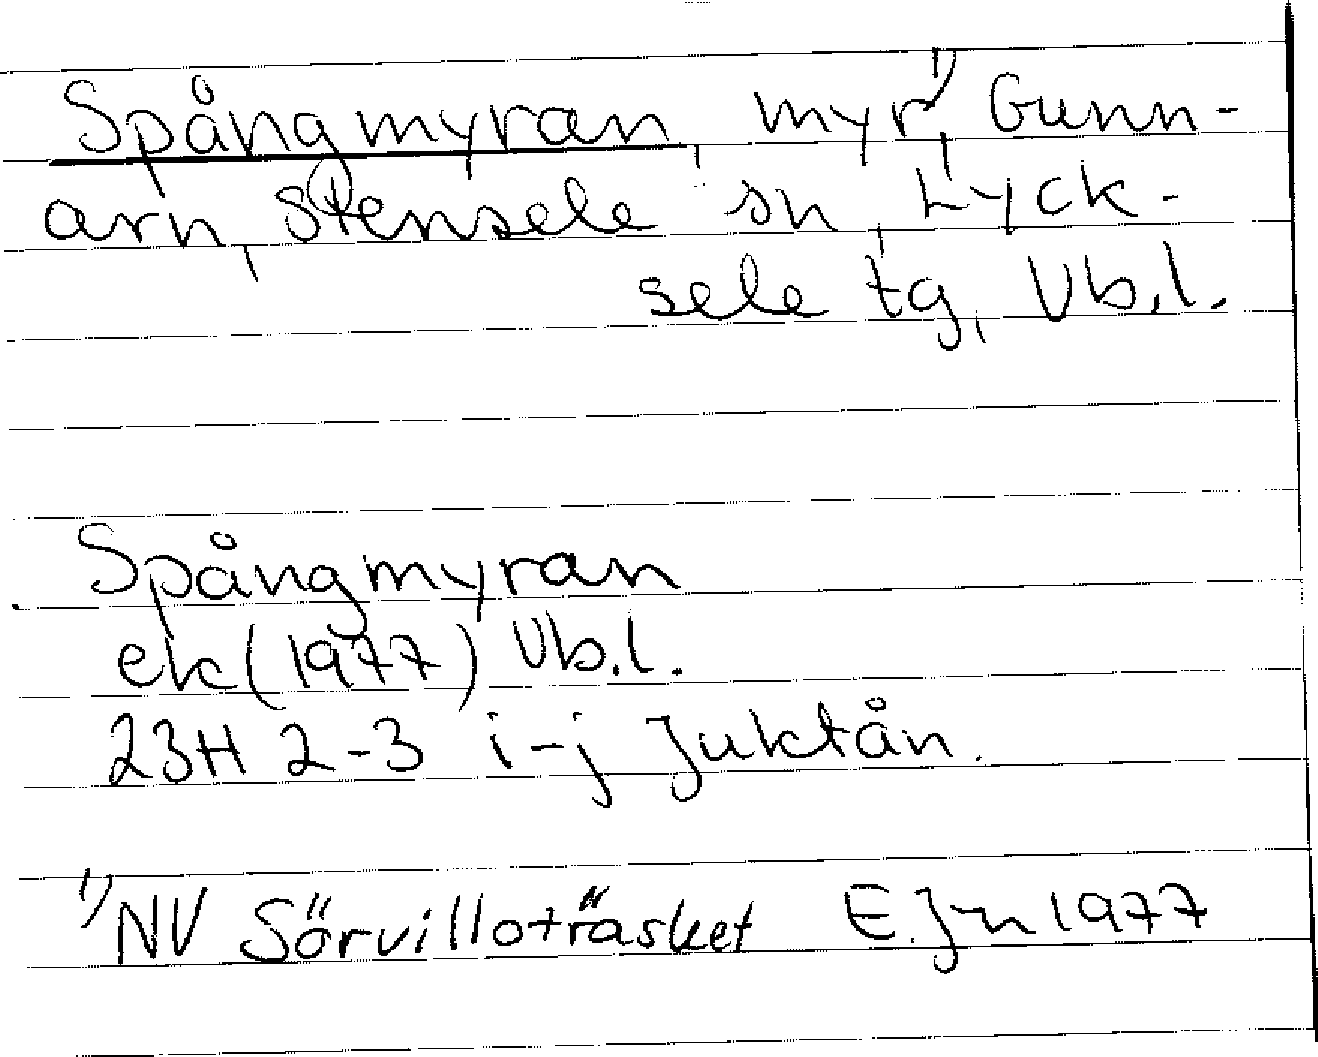 Spångmyran, myr,¹⁾ Gunn-
arn, Stensele sn, Lyck-
sele tg, Vb.l.
Spångmyran
ek (1977) Vb.l.
23H 2-3 i-j Juktån.
¹⁾ NV Sörvilloträsket E.Jn 1977